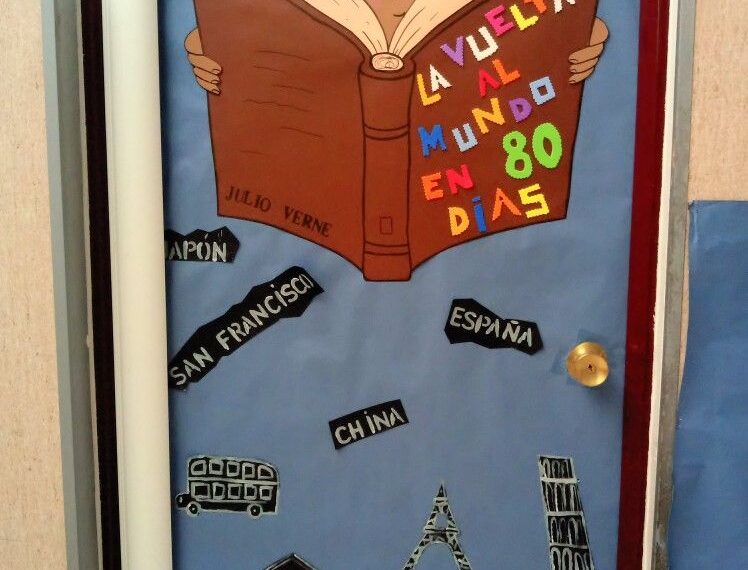 LA VUELTA
AL
MUNDO
EN 80
DÍAS
JULIO VERNE
APÓN
SAN FRANCISCO
ESPAÑA
CHINA